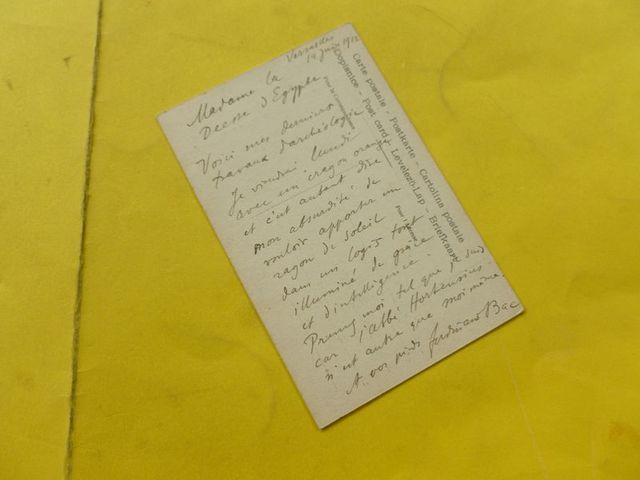 Versailles
14 Juin 1912
Madame la
Déesse d'Egypte
Voici mes derniers
travaux d'archéologie
Je viendrai lundi
avec un crayon orange
et c'est autant dire
mon absurdité de
vouloir apporter un
rayon de soleil
dans un logis tout
illuminé de grâce
et d'intelligence.
Prenez moi tel que je suis
car l'abbé Hortensius
n'est autre que moi même
A vos pieds Ferdinand Bac
Carte postale - Postkarte - Cartolina postale
Dopisnice - Post card - Levelező-Lap - Briefkaart